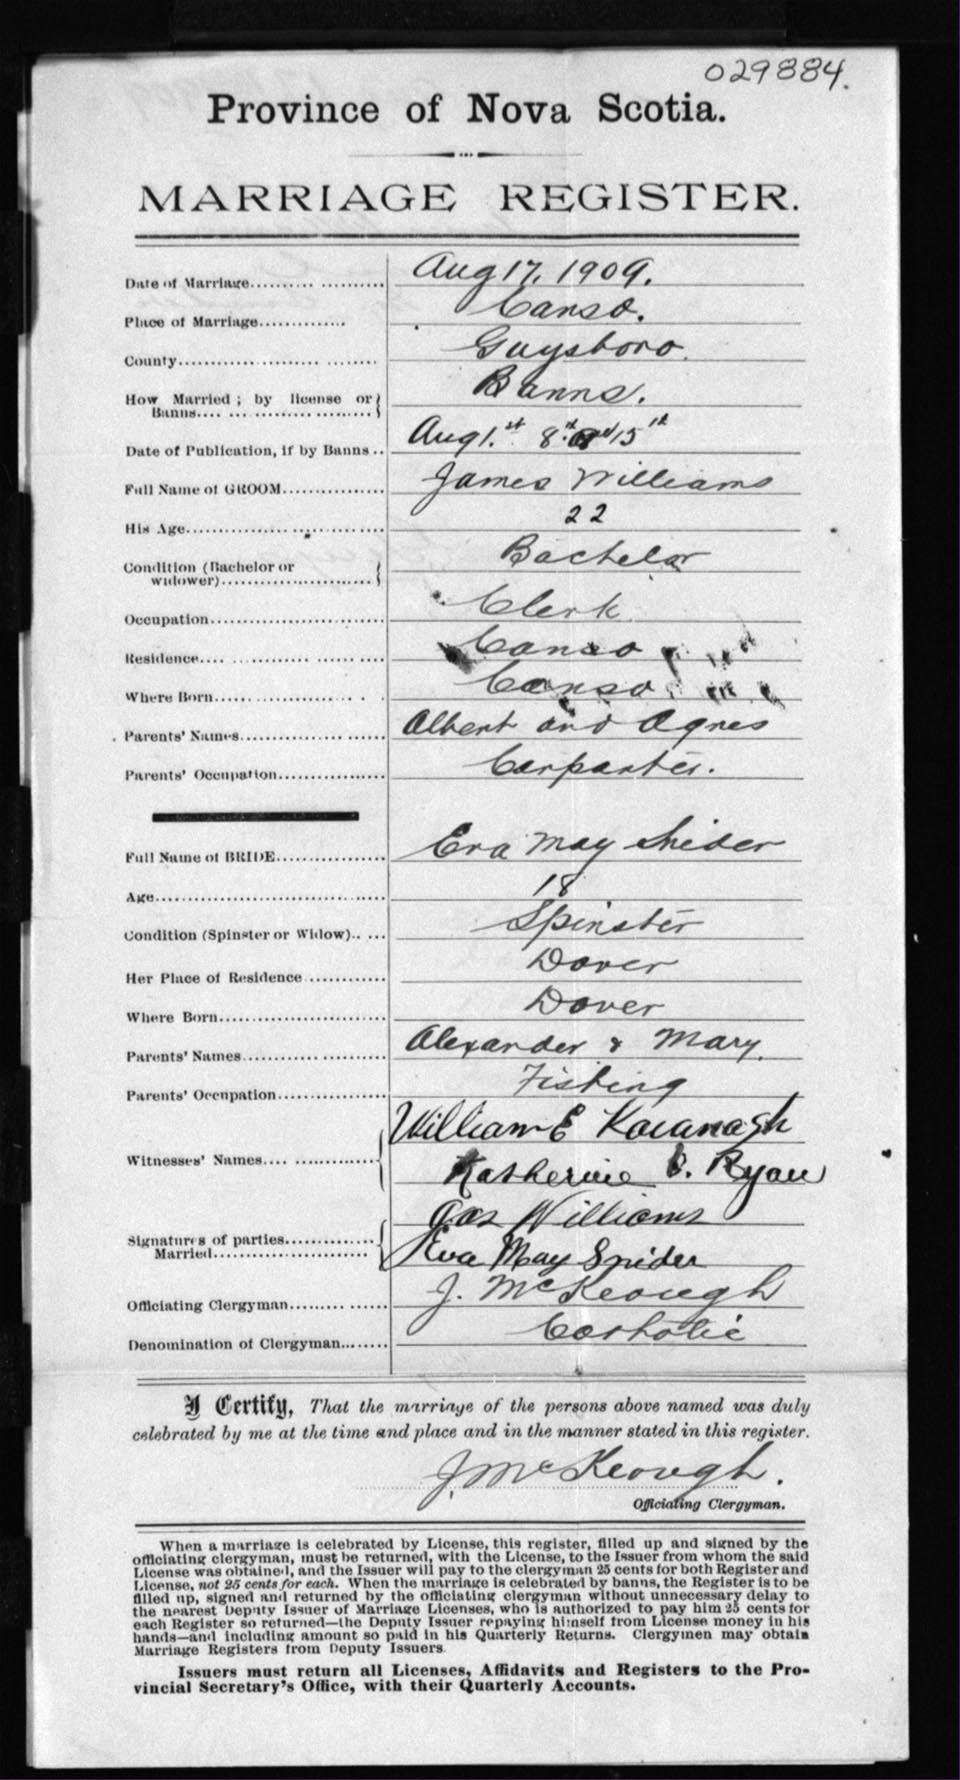 029884.
Province of Nova Scotia.
MARRIAGE REGISTER.
Date of Marriage.......... Aug 17, 1909.
Place of Marriage.............. Canso.
County.................... Guysboro.
How Married ; by license or Banns.... Banns.
Date of Publication, if by Banns.. Aug 1.st 8.th and 15th
Full Name of GROOM................ James Williams
His Age.................. 22
Condition (Bachelor or widower)........................ Bachelor
Occupation........................ Clerk
Residence.... Canso
Where Born.................. Canso
Parents' Names.................. Albert and Agnes
Parents' Occupation................. Carpanter.
Full Name of BRIDE................. Eva May Snider
Age.................................. 18
Condition (Spinster or Widow)..... Spinster
Her Place of Residence............ Dover
Where Born........................ Dover
Parents' Names.................... Alexander & Mary.
Parents' Occupation................. Fishing
William E Kavanagh
Witnesses' Names.... ..............
Katherine Ryan
Jas Williams
Signatures of parties..............
Married......................... Eva May Snider
Officiating Clergyman......... ...... J. McKeough
Denomination of Clergyman........ Catholic
I Certify, That the marriage of the persons above named was duly
celebrated by me at the time and place and in the manner stated in this register.
J. McKeough.
Officiating Clergyman.
When a marriage is celebrated by License, this register, filled up and signed by the
officiating clergyman, must be returned, with the License, to the Issuer from whom the said
License was obtained, and the Issuer will pay to the clergyman 25 cents for both Register and
License, not 25 cents for each. When the marriage is celebrated by banns, the Register is to be
filled up, signed and returned by the officiating clergyman without unnecessary delay to
the nearest Deputy Issuer of Marriage Licenses, who is authorized to pay him 25 cents for
each Register so returned—the Deputy Issuer repaying himself from License money in his
hands—and including amount so paid in his Quarterly Returns. Clergymen may obtain
Marriage Registers from Deputy Issuers.
Issuers must return all Licenses, Affidavits and Registers to the Pro-
vincial Secretary's Office, with their Quarterly Accounts.